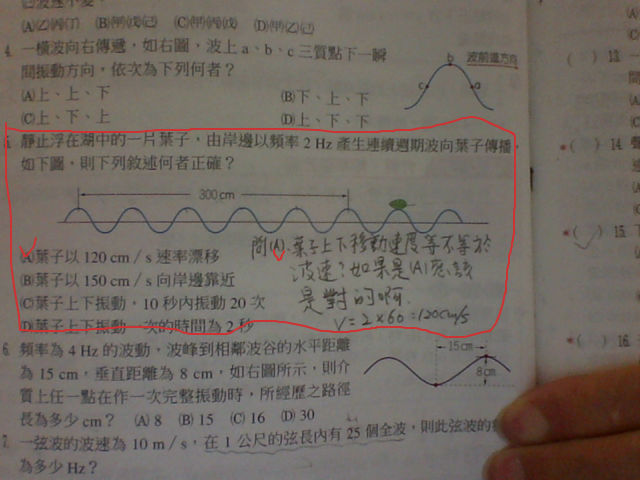 (A)乙丙丁 (B)甲戊己 (C)甲丙戊 (D)甲乙己
4. 一橫波向右傳遞，如右圖，波上 a、b、c 三質點下一瞬
間振動方向，依次為下列何者？
(A)上、上、下 (B)下、上、下
(C)上、下、上 (D)上、下、下
b 波前進方向
c a
靜止浮在湖中的一片葉子，由岸邊以頻率 2 Hz 產生連續週期波向葉子傳播，
如下圖，則下列敘述何者正確？
300 cm
(A)葉子以 120 cm / s 速率漂移
(B)葉子以 150 cm / s 向岸邊靠近
(C)葉子上下振動，10 秒內振動 20 次
(D)葉子上下振動一次的時間為 2 秒
問(A)、葉子上下移動速度等不等於
波速？如果是(A)應該
是對的啊.
V=2×60=120cm/s
6. 頻率為 4 Hz 的波動，波峰到相鄰波谷的水平距離
為 15 cm，垂直距離為 8 cm，如右圖所示，則介
質上任一點在作一次完整振動時，所經歷之路徑
長為多少 cm？ (A) 8 (B) 15 (C) 16 (D) 30
15 cm
8 cm
7. 一弦波的波速為 10 m / s，在 1 公尺的弦長內有 25 個全波，則此弦波的
為多少 Hz？
(A)
(C)
( ) 13.
14.
( ) 15.
16.